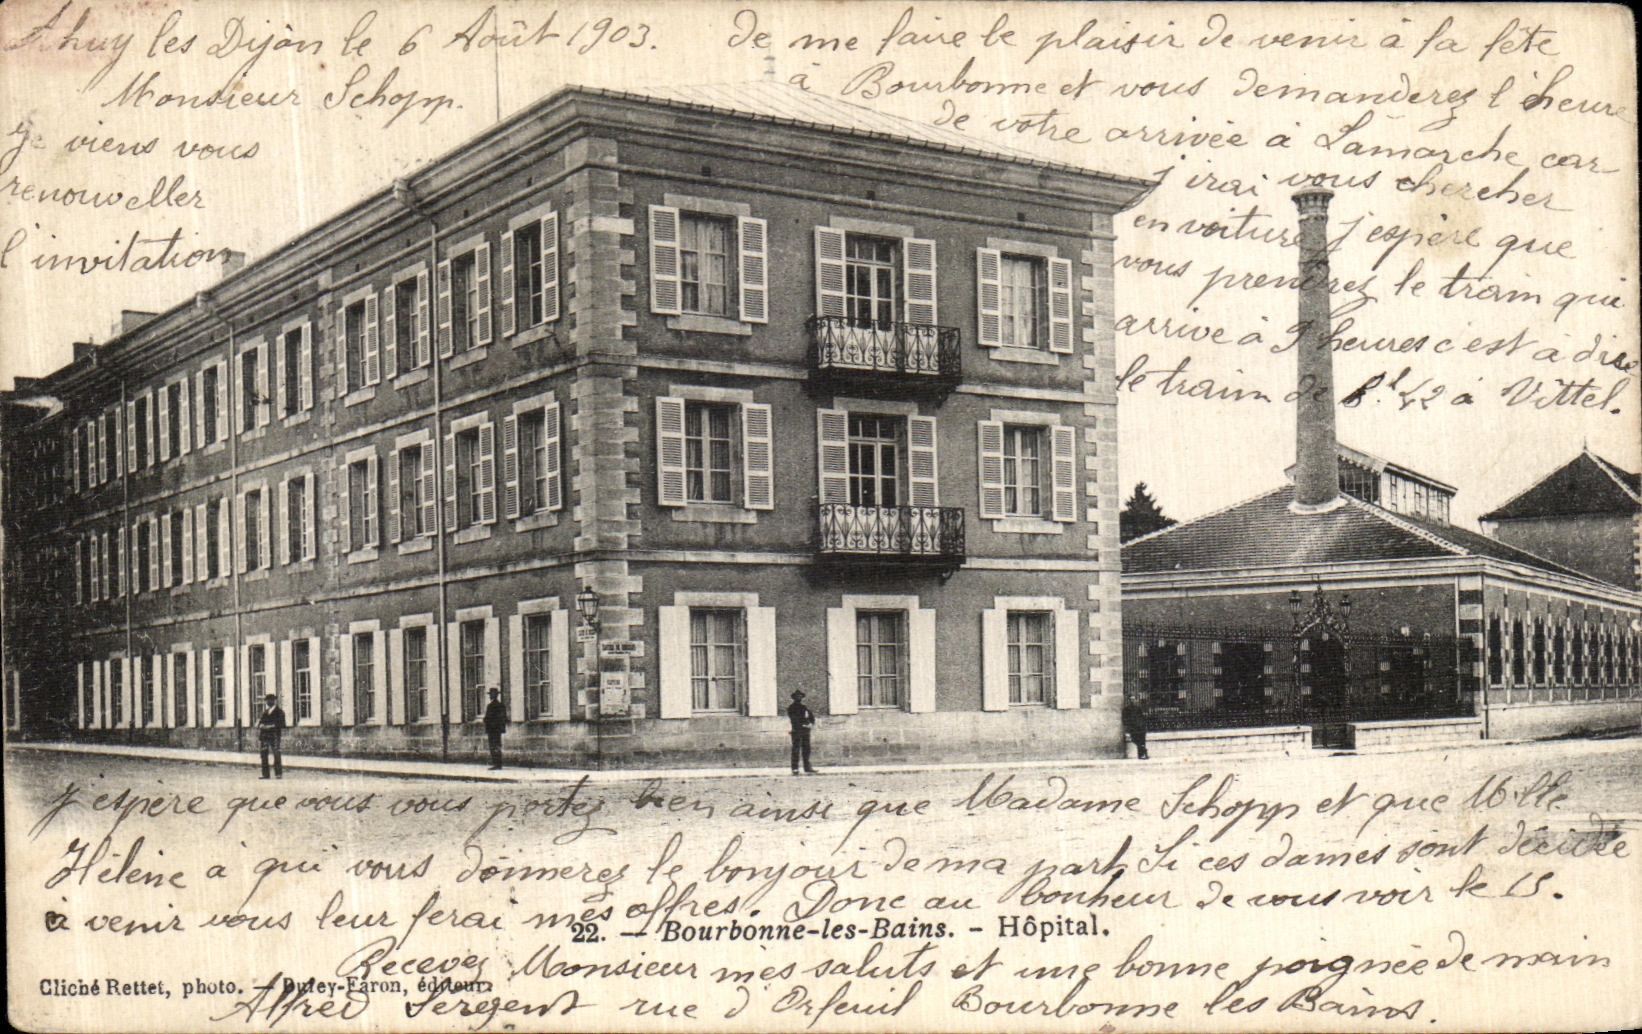 Ahuy les Dijon le 6 Août 1903.
Monsieur Schopp.
Je viens vous
renouveller
l'invitation
de me faire le plaisir de venir à la fête
à Bourbonne et vous demanderez l'heure
de votre arrivée à Lamarche car
j'irai vous chercher
en voiture j'espère que
vous prendrez le train qui
arrive à 9 heures c'est à dire
le train de 8.h 42 à Vittel.
j'espère que vous vous portez bien ainsi que Madame Schopp et que Mlle
Hélène à qui vous donnerez le bonjour de ma part Si ces dames sont décidée
à venir vous leur ferai mes offres. Donc au bonheur de vous voir le 15.
22. — Bourbonne-les-Bains. - Hôpital.
Recevez Monsieur mes saluts et une bonne poignée de main
Cliché Rettet, photo. — Dufey-Faron, éditeur.
Alfred Sergent rue d'Orfeuil Bourbonne les Bains.